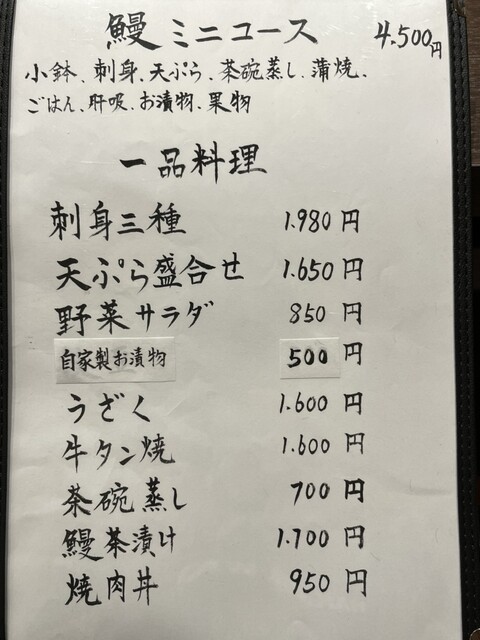 鰻ミニコース 4.500円
小鉢、刺身、天ぷら、茶碗蒸し、蒲焼、
ごはん、肝吸、お漬物、果物
一品料理
刺身三種 1.980円
天ぷら盛合せ 1.650円
野菜サラダ 850円
自家製お漬物 500円
うざく 1.600円
牛タン焼 1.600円
茶碗蒸し 700円
鰻茶漬け 1.700円
焼肉丼 950円